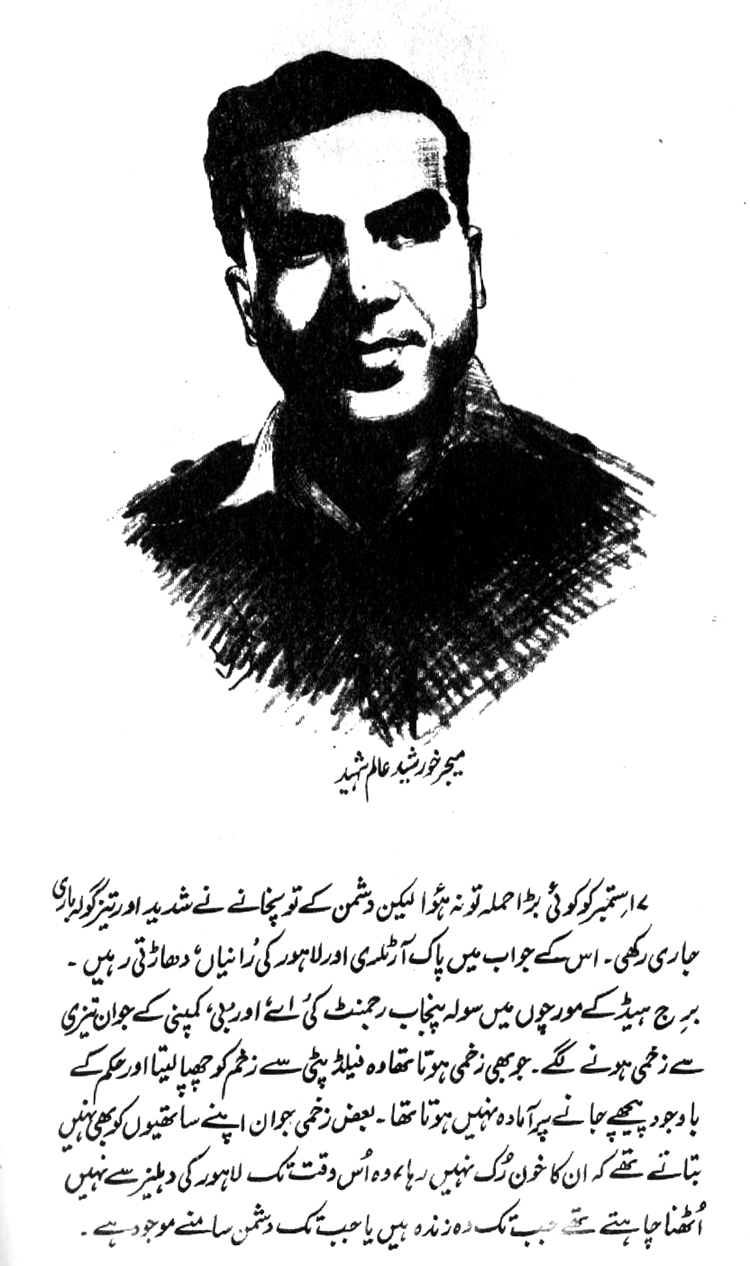 میجر خورشید عالم شہید
۱۷ ستمبر کو کوئی بڑا حملہ تو نہ ہوٗا لیکن دشمن کے توپخانے نے شدید اور تیز گولہ باری
جاری رکھی۔ اس کے جواب میں پاک آرٹلری اور لاہور کی رُانیاں دھاڑتی رہیں۔
برج ہیڈ کے مورچوں میں سولہ پنجاب رجمنٹ کی ’اے‘ اور ’بی‘ کمپنی کے جوان تیزی
سے زخمی ہونے لگے۔ جو بھی زخمی ہوتا تھا وہ فیلڈ پٹی سے زخم کو چھپا لیتا اور حکم کے
باوجود پیچھے جانے پر آمادہ نہیں ہوتا تھا۔ بعض زخمی جوان اپنے ساتھیوں کو بھی نہیں
بتاتے تھے کہ ان کا خون رُک نہیں رہا، وہ اُس وقت تک لاہور کی دہلیز سے نہیں
اُٹھنا چاہتے تھے جب تک وہ زندہ ہیں یا جب تک دشمن سامنے موجود ہے۔